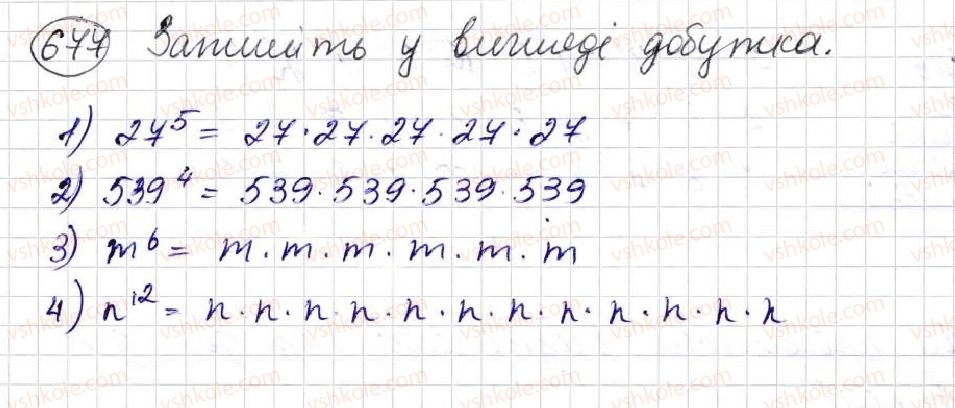 677 Запишіть у вигляді добутка.
1) 27⁵ = 27 · 27 · 27 · 27 · 27
2) 539⁴ = 539 · 539 · 539 · 539
3) m⁶ = m · m · m · m · m · m
4) n¹² = n · n · n · n · n · n · n · n · n · n · n · n